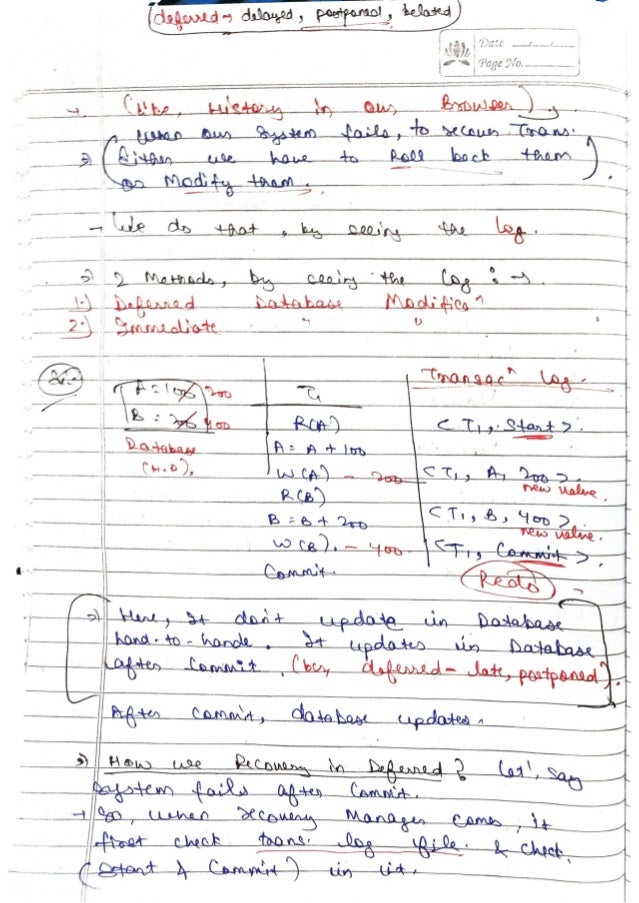 (deferred → delayed, postponed, belated)
Date
Page No.
→ (like, History in our Browser),
when our System fails, to recover Trans.
⇒ (Either we have to Roll back them
or Modify them.)
- We do that, by seeing the log.
⇒ 2 Methods, by seeing the log : →
1.) Deferred Database Modificaⁿ
2.) Immediate " "
Ex:-
A = 100 200
B = 200 400
Database
(H.D).
T1
R(A)
A = A + 100
W(A) - 200
R(B)
B = B + 200
W(B). - 400
Commit.
Transacⁿ log.
<T1, Start>.
<T1, A, 200>.
new value.
<T1, B, 400>
new value.
<T1, Commit>.
Redo
⇒ Here, It don't update in Database
hand-to-hande. It updates in Database
after Commit. (bcz, deferred - late, postponed).
After commit, database updates.
⇒ How we Recovery in Deferred? Let's say
System fails after Commit.
→ So, when recovery Manager comes, it
first check trans. log file. & check.
(Start & Commit) in it.